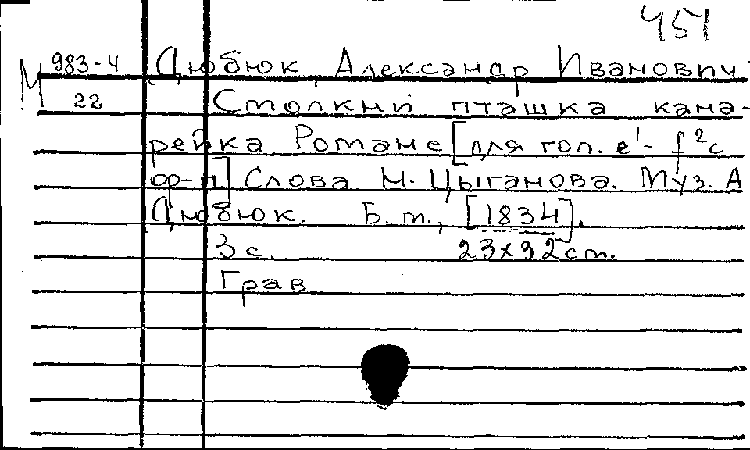 451
М 983-4 Дюбюк, Александр Иванович.
22 Столкни пташка кана-
рейка Романс [для гол. e¹- f²с
ф-п] Слова Н. Цыганова. Муз. А
Дюбюк. Б.т., [1834].
3 с. 23х32 см.
Грав